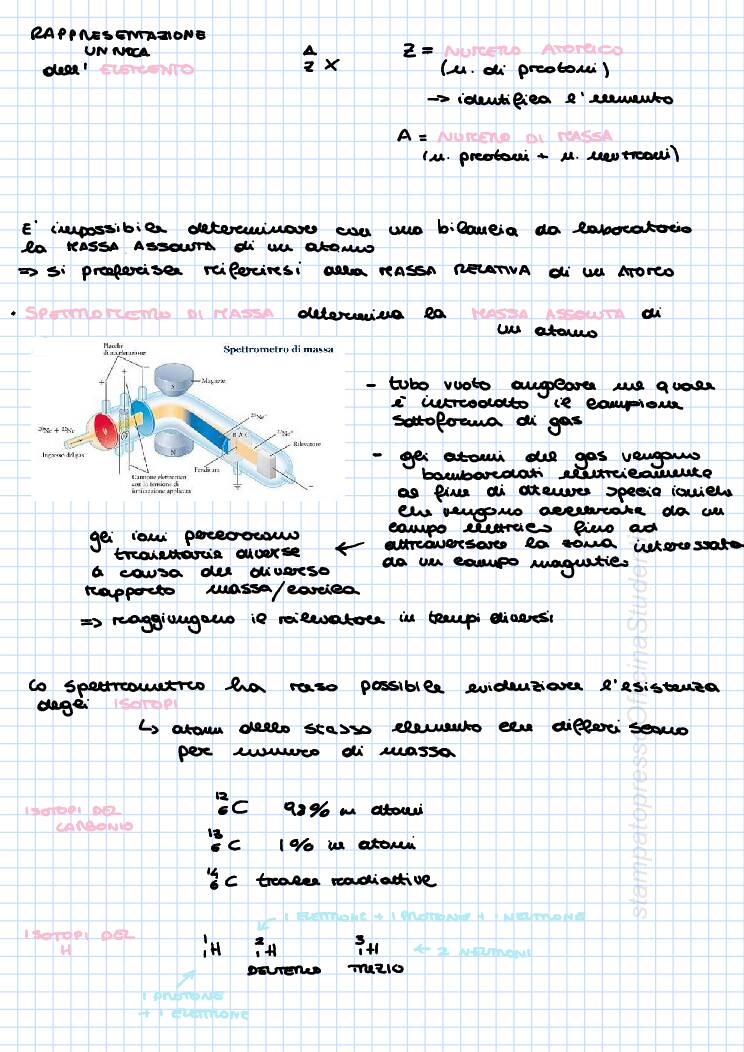 RAPPRESENTAZIONE
UNIVOCA
dell' ELEMENTO
A
Z X
Z = NUMERO ATOMICO
(n. di protoni)
→ identifica l'elemento
A = NUMERO DI MASSA
(n. protoni + n. neutroni)
E' impossibile determinare con una bilancia da laboratorio
la MASSA ASSOLUTA di un atomo
⇒ si preferisce riferirsi alla MASSA RELATIVA di un ATOMO
• SPETTROMETRO DI MASSA determina la MASSA ASSOLUTA di
un atomo
Spettrometro di massa
Placche
di accelerazione
Magnete
S
N
Ingresso del gas
Fenditura
B A C
Rilevatore
Cannone elettronico
con la tensione di
ionizzazione applicata
- tubo vuoto angolare nel quale
è introdotto il campione
sottoforma di gas
- gli atomi del gas vengono
bombardati elettricamente
al fine di ottenere specie ioniche
che vengono accelerate da un
campo elettrico fino ad
attraversare la zona interessata
da un campo magnetico
← gli ioni percorrono
traiettorie diverse
a causa del diverso
rapporto massa/carica
⇒ raggiungono il rilevatore in tempi diversi
Lo spettrometro ha reso possibile evidenziare l'esistenza
degli ISOTOPI
↳ atomi dello stesso elemento che differiscono
per numero di massa
ISOTOPI DEL
CARBONIO
12 6 C 98% in atomi
13 6 C 1% in atomi
14 6 C tracce radiattive
← 1 ELETTRONE + 1 PROTONE + 1 NEUTRONE
ISOTOPI DEL
H
1 1 H 2 1 H 3 1 H ← 2 NEUTRONI
DEUTERIO TRIZIO
1 PROTONE
+ 1 ELETTRONE